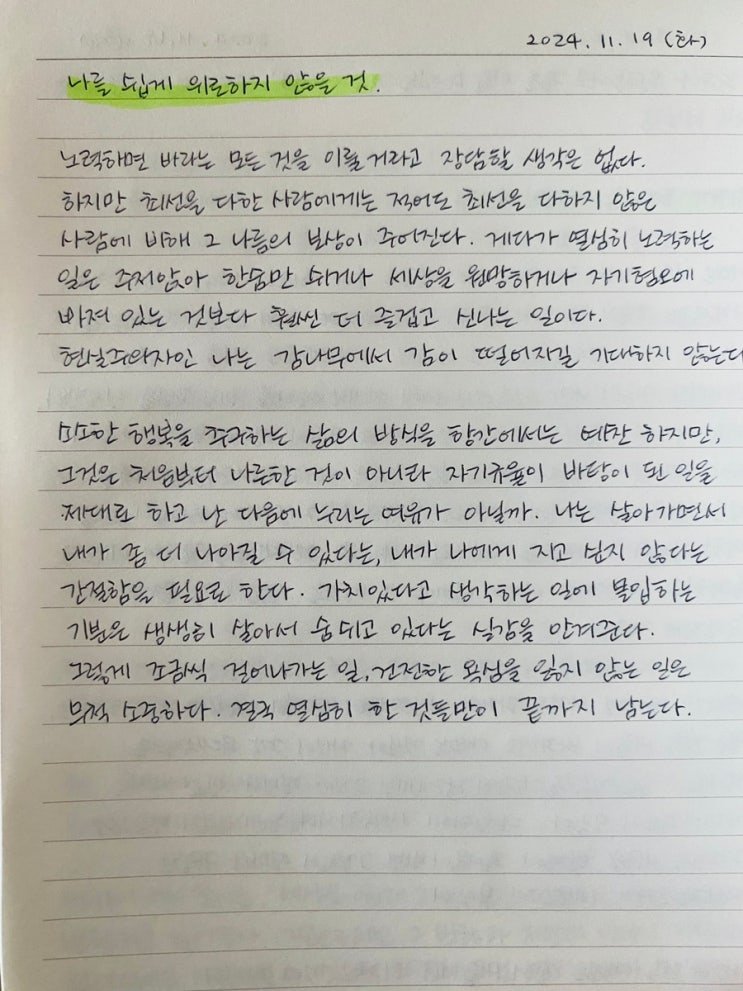 2024. 11. 19 (화)
나를 쉽게 위로하지 않을 것.
노력하면 바라는 모든 것을 이룰 거라고 장담할 생각은 없다.
하지만 최선을 다한 사람에게는 적어도 최선을 다하지 않은
사람에 비해 그 나름의 보상이 주어진다. 게다가 열심히 노력하는
일은 주저앉아 한숨만 쉬거나 세상을 원망하거나 자기혐오에
빠져 있는 것보다 훨씬 더 즐겁고 신나는 일이다.
현실주의자인 나는 감나무에서 감이 떨어지길 기대하지 않는다
소소한 행복을 추구하는 삶의 방식을 항간에서는 예찬 하지만,
그것은 처음부터 나른한 것이 아니라 자기규율이 바탕이 된 일을
제대로 하고 난 다음에 누리는 여유가 아닐까. 나는 살아가면서
내가 좀 더 나아질 수 있다는, 내가 나에게 지고 싶지 않다는
간절함을 필요로 한다. 가치있다고 생각하는 일에 몰입하는
기분은 생생히 살아서 숨쉬고 있다는 실감을 안겨준다.
그렇게 조금씩 걸어나가는 일, 건전한 욕심을 잃지 않는 일은
무척 소중하다. 결국 열심히 한 것들만이 끝까지 남는다.